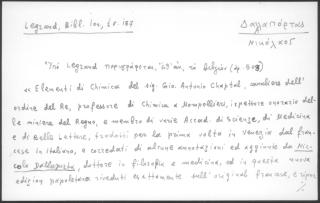 Legrand, Bibl. Ion, ἐ.σ. 187
Δαλαπόρτας
Νικόλαος
Ὑπὸ Legrand περιγράφεται,
« Elementi di Chimica del sig. Gio. Antonio Chaptal, cavaliere dell'
ordine del Re, professore di Chimica a Mompollieri, ispettore onorario del-
le miniere del Regno, e membro di varie Accad. di Scienze, di Medicina
e di Belle Lettere, tradotti per la prima volta in Venezia dal fran-
cese in italiano, e corredati di alcune annotazioni ed aggiunte da Nic-
colo Dallaporta, dottore in filosofia e medicina, ed in questa nuova
edizion napoletana riveduti esattamente sull' original francese, e ripur